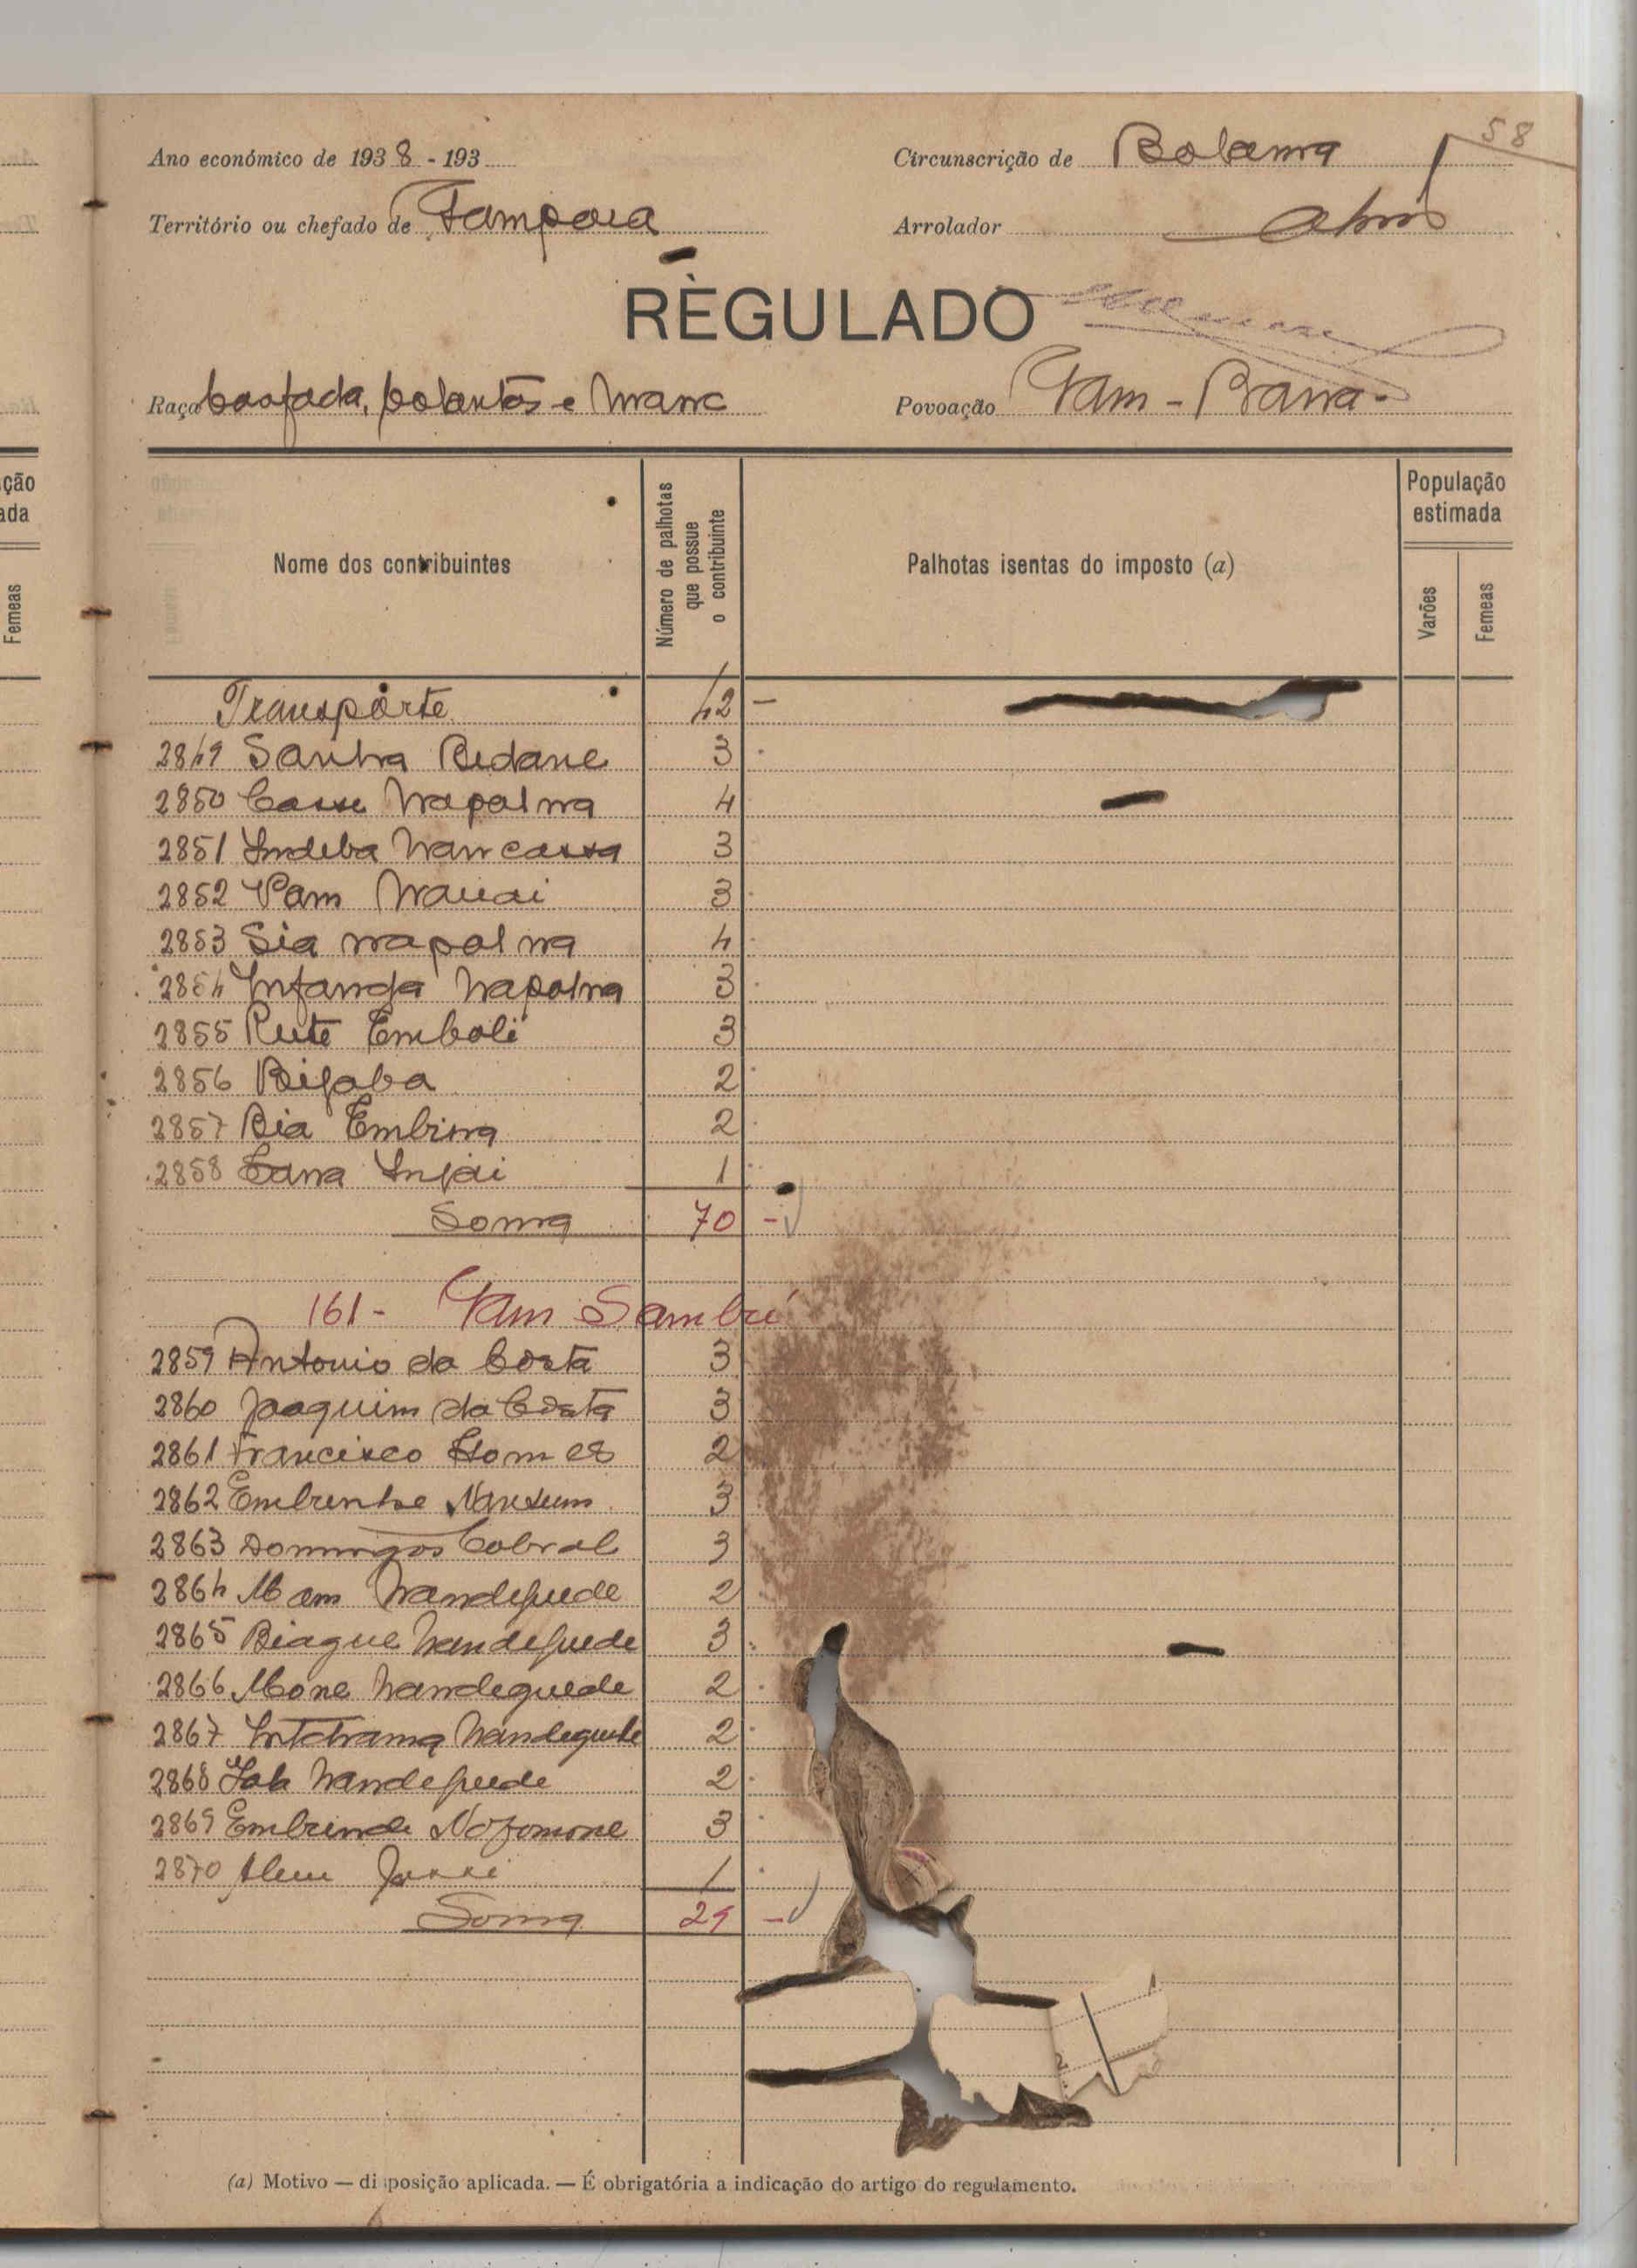 58
Ano económico de 1938 - 193
Circunscrição de Bolama
Território ou chefado de
Arrolador
REGULADO
Raça
Povoação Tam - Bana
ção
ada
Femeas
Nome dos contribuintes
Número de palhotas que possue o contribuinte
Palhotas isentas do imposto (a)
População estimada
Varões
Femeas
Transporte 42 -
2849 Sanha Bedane 3
2850 Casse Napalna 4
2851 Indeba Nancassa 3
2852 Pam 3
2853 Sia Napalna 4
2854 Infanda Napalna 3
2855 Rute Emboli 3
2856 Bijaba 2
2857 Bia Embina 2
2858 Sana Injai 1
Soma 70 -
161 - Tam Sambú
2859 Antonio da Costa 3
2860 Joaquim da Costa 3
2861 Francisco Gomes 2
2862 3
2863 Domingos Cabral 3
2864 Mam Nandeguede 2
2865 Biague Nandeguede 3
2866 Mone Nandeguede 2
2867 Nandeguede 2
2868 Nandeguede 2
2869 3
2870 1
Soma 29 -
(a) Motivo — disposição aplicada. — É obrigatória a indicação do artigo do regulamento.